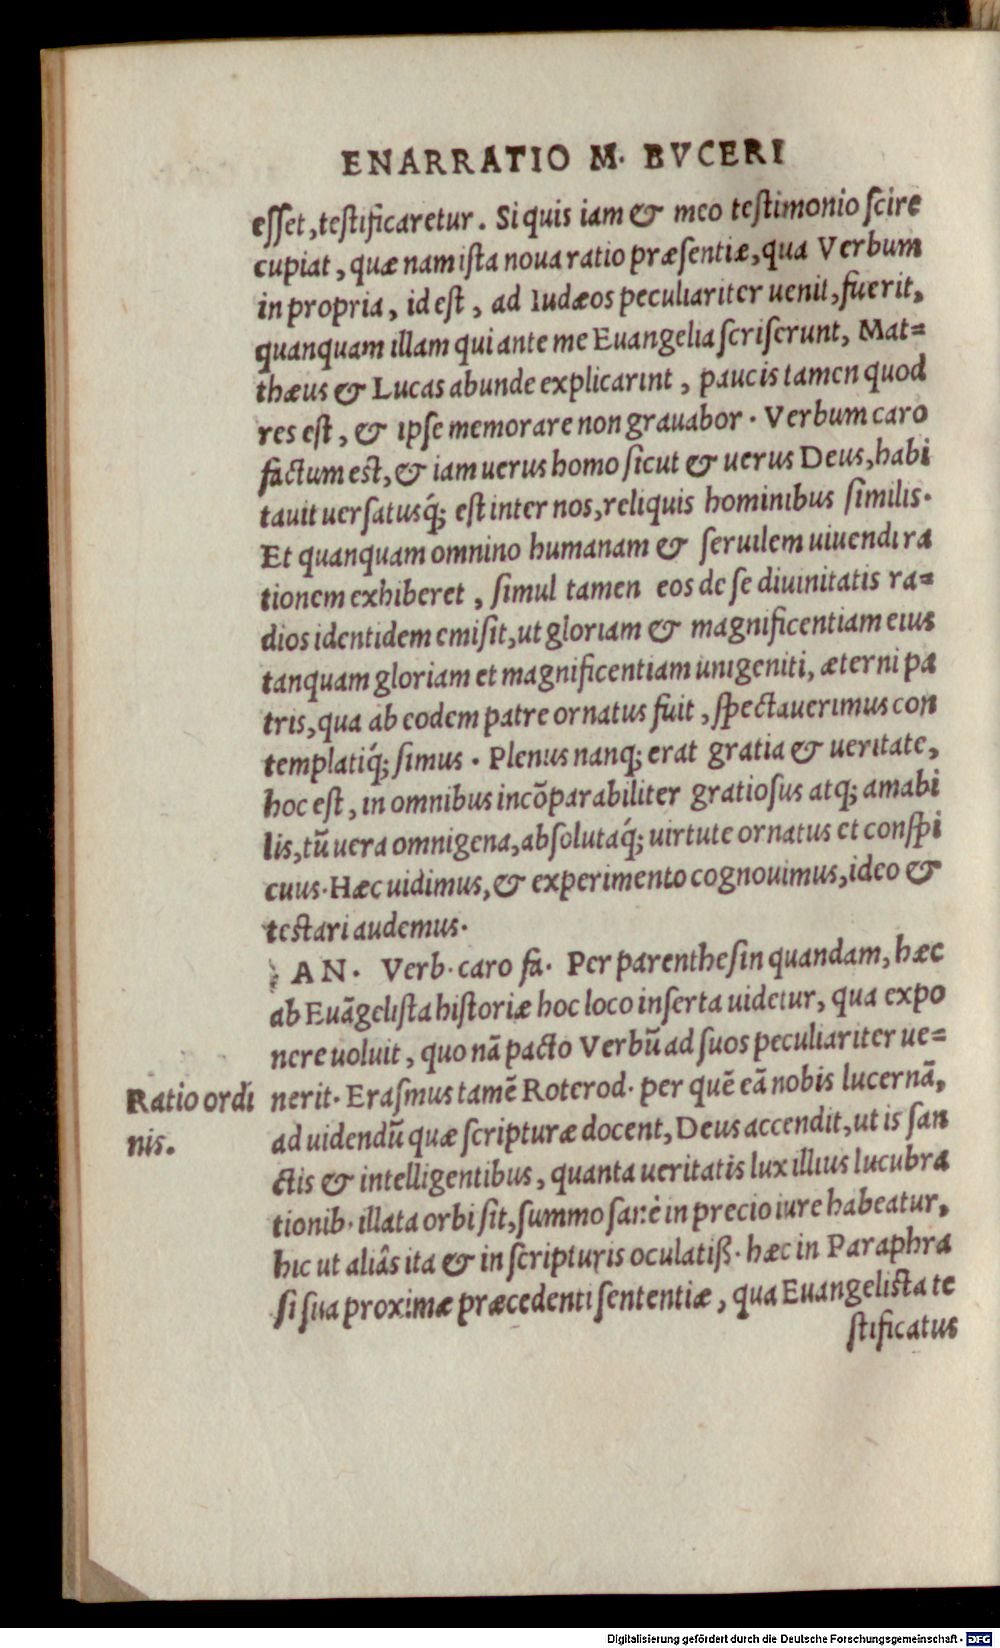 ENARRATIO M. BVCERI
esset, testificaretur. Si quis iam & meo testimonio scire
cupiat, quæ nam ista noua ratio præsentiæ, qua Verbum
in propria, id est, ad Iudæos peculiariter uenit, fuerit,
quanquam illam qui ante me Euangelia scriserunt, Mat=
thæus & Lucas abunde explicarint, paucis tamen quod
res est, & ipse memorare non grauabor. Verbum caro
factum est, & iam uerus homo sicut & uerus Deus, habi
tauit uersatusq́; est inter nos, reliquis hominibus similis.
Et quanquam omnino humanam & seruilem uiuendi ra
tionem exhiberet, simul tamen eos de se diuinitatis ra=
dios identidem emisit, ut gloriam & magnificentiam eius
tanquam gloriam et magnificentiam unigeniti, æterni pa
tris, qua ab eodem patre ornatus fuit, spectauerimus con
templatiq́; simus. Plenus nanq; erat gratia & ueritate,
hoc est, in omnibus incõparabiliter gratiosus atq; amabi
lis, tũ uera omnigena, absolutaq́; uirtute ornatus et conspi
cuus. Hæc uidimus, & experimento cognouimus, ideo &
testari audemus.
AN. Verb. caro fa. Per parenthesin quandam, hæc
ab Euãgelista historiæ hoc loco inserta uidetur, qua expo
nere uoluit, quo nã pacto Verbũ ad suos peculiariter ue=
Ratio ordi
nis.
nerit. Erasmus tamẽ Roterod. per quẽ eã nobis lucernã,
ad uidendũ quæ scripturæ docent, Deus accendit, ut is san
ctis & intelligentibus, quanta ueritatis lux illius lucubra
tionib. illata orbi sit, summo sanè in precio iure habeatur,
hic ut aliâs ita & in scripturis oculatiß. hæc in Paraphra
si sua proximæ præcedenti sententiæ, qua Euangelista te
stificatus
Digitalisierung gefördert durch die Deutsche Forschungsgemeinschaft - DFG